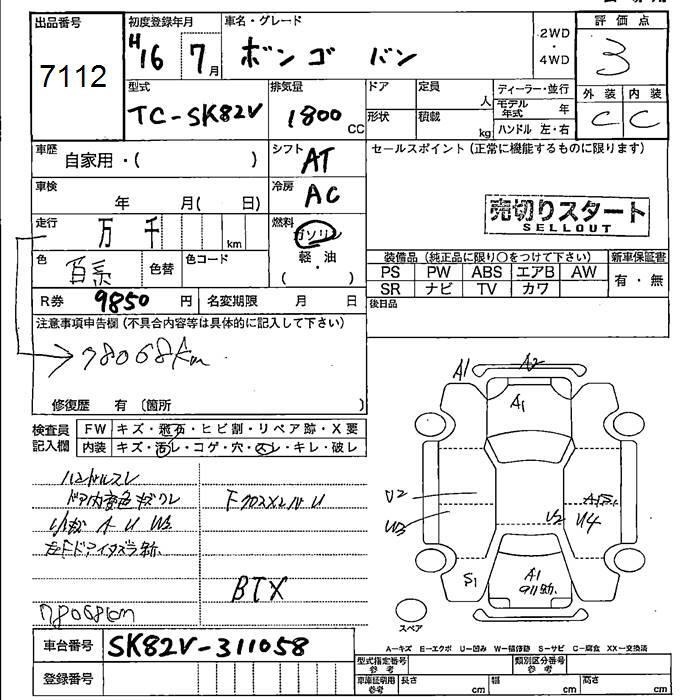 出品番号 初度登録年月 車名・グレード 2WD・4WD 評価点
7112 H16 7月 ボンゴ バン 3
型式 排気量 ドア 定員 人 ディーラー・並行 外装 内装
TC-SK82V 1800CC 形状 積載 kg モデル年式 年 C C
ハンドル 左・右
車歴 自家用・( ) シフト AT セールスポイント(正常に機能するものに限ります)
車検 年 月( 日) 冷房 AC
売切りスタート
SELLOUT
走行 万 千 km 燃料 ガソリン
軽・油
( )
色 色替 色コード
装備品(純正品に限り○をつけて下さい) 新車保証書
PS PW ABS エアB AW 有・無
SR ナビ TV カワ
R券 9850円 名変期限 月 日 後日品
注意事項申告欄(不具合内容等は具体的に記入して下さい)
78068km
修復歴 有(箇所 )
検査員記入欄 FW キズ・飛石・ヒビ割・リペア跡・X要
内装 キズ・汚レ・コゲ・穴・スレ・キレ・破レ
A1 A2
A1
ハンドルスレ
U2 U2 U4
W3
BTX
S1 A1
78068km
スペア
A-キズ E-エクボ U-凹み W-補修跡 S-サビ C-腐食 XX-交換済
車台番号 SK82V-311058
登録番号
型式指定番号 参考 類別区分番号 参考
車庫証明用 参考 長さ cm 幅 cm 高さ cm